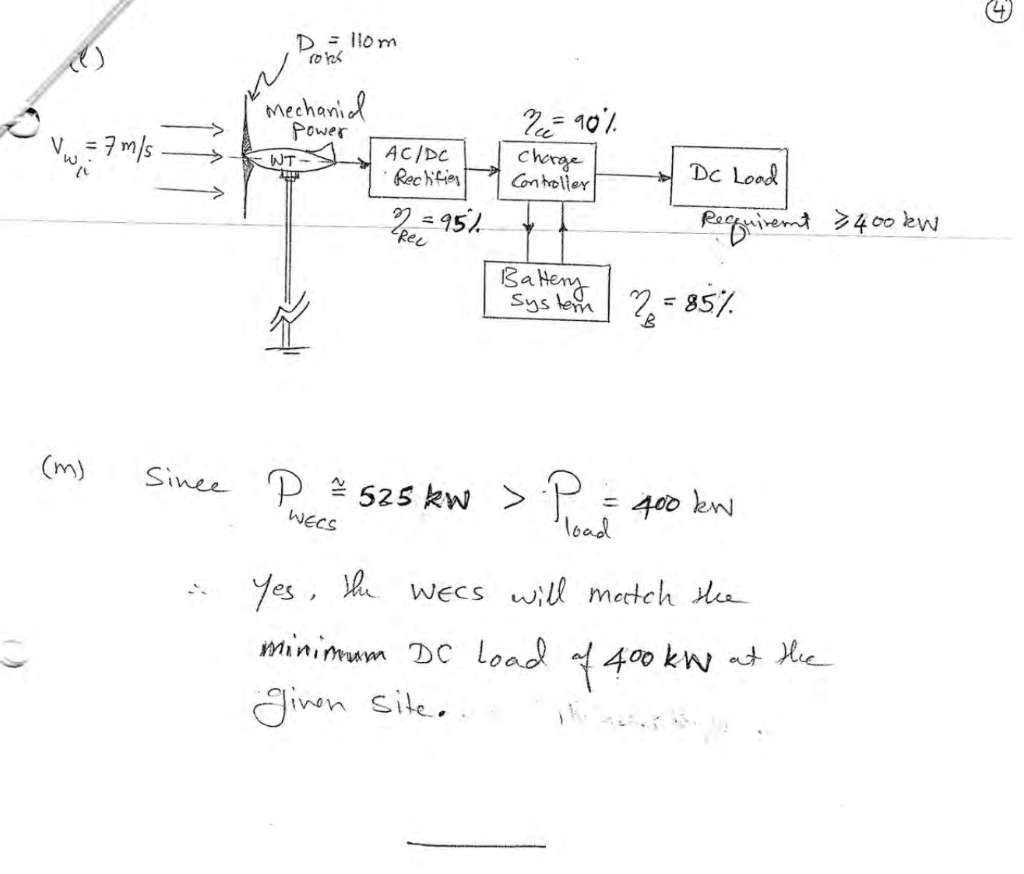 ④
(l)
D rotor = 110m
mechanicl
power
V w,i = 7 m/s
WT
AC/DC
Rectifier
η Rec = 95%
η cc = 90%
Charge
Controller
DC Load
Requiremt ≥ 400 kW
Battery
System
η B = 85%
(m) Since P WECS ≅ 525 kW > P load = 400 kW
∴ Yes, the WECS will match the
minimum DC Load of 400 kW at the
given site.